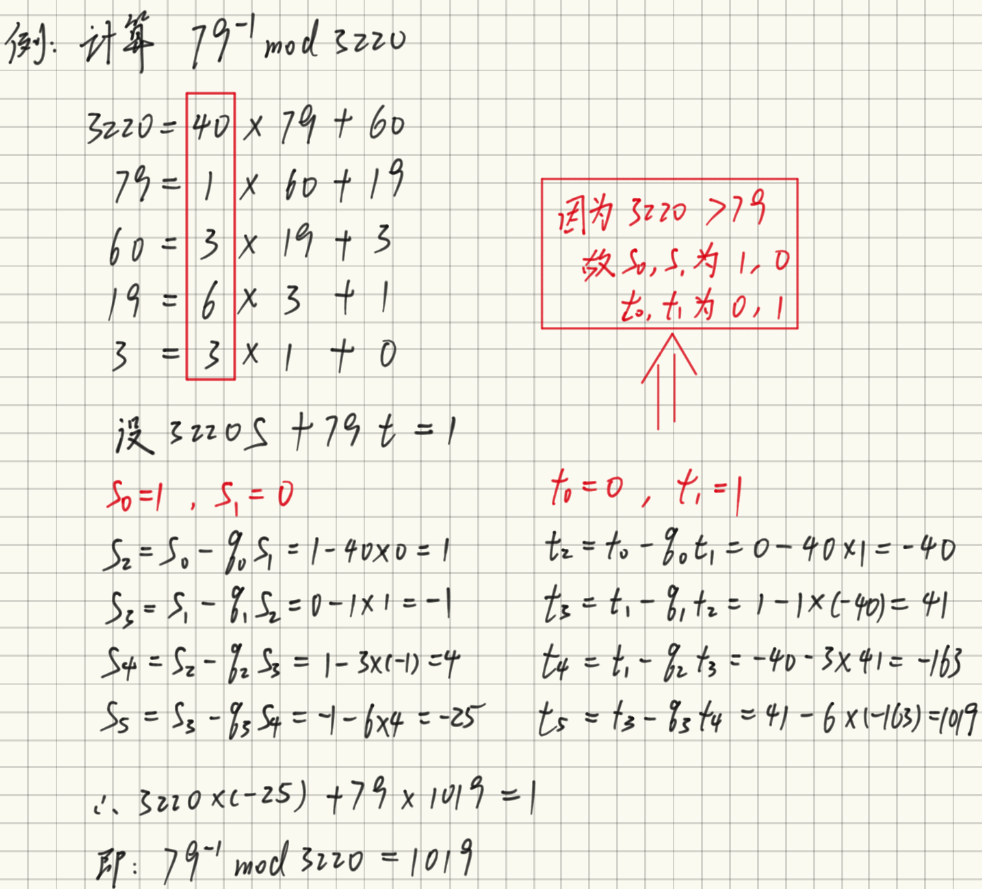 例: 计算 79⁻¹ mod 3220
3220 = 40 × 79 + 60
79 = 1 × 60 + 19
60 = 3 × 19 + 3
19 = 6 × 3 + 1
3 = 3 × 1 + 0
因为 3220 > 79
故 S₀, S₁ 为 1, 0
t₀, t₁ 为 0, 1
设 3220S + 79t = 1
S₀ = 1, S₁ = 0
S₂ = S₀ - q₀S₁ = 1 - 40×0 = 1
S₃ = S₁ - q₁S₂ = 0 - 1×1 = -1
S₄ = S₂ - q₂S₃ = 1 - 3×(-1) = 4
S₅ = S₃ - q₃S₄ = -1 - 6×4 = -25
t₀ = 0, t₁ = 1
t₂ = t₀ - q₀t₁ = 0 - 40×1 = -40
t₃ = t₁ - q₁t₂ = 1 - 1×(-40) = 41
t₄ = t₁ - q₂t₃ = -40 - 3×41 = -163
t₅ = t₃ - q₃t₄ = 41 - 6×(-163) = 1019
∴ 3220×(-25) + 79×1019 = 1
即: 79⁻¹ mod 3220 = 1019